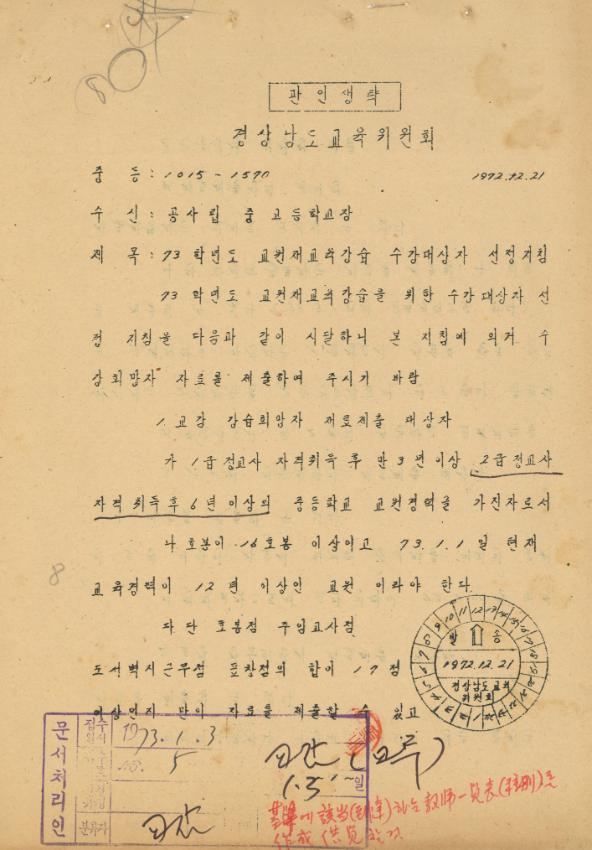 관인생략
경상남도교육위원회
중 등 : 1015-1570 1972.12.21
수 신 : 공사립 중 고등학교장
제 목 : 73 학년도 교원재교육강습 수강대상자 선정지침
73 학년도 교원재교육강습을 위한 수강대상자 선
정 지침을 다음과 같이 시달하니 본 지침에 의거 수
강희망자 자료를 제출하여 주시기 바람
1. 교감 강습희망자 재료제출 대상자
가 1급정교사 자격취득후 만 3년이상 2급정교사
자격 취득후 6년 이상의 중등학교 교원경력을 가진자로서
나 호봉이 16호봉 이상이고 73.1.1 일 현재
교육경력이 12년 이상인 교원 이라야 한다
다 단 호봉점 주임교사점
도서벽지근무점 표창점의 합이 17점
이상인자 만이 자료를 제출할 수 있고
발송
1972.12.21
경상남도교육
위원회
문서처리인
접수
1973.1.3
5
분류자
교감
1.5 일
該当 하는 教师一覧表
作成 供覧
8